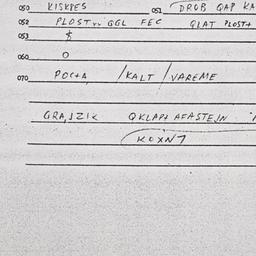 050 KISKPES 051 DROB QAP KA
052 PLOST GGL FEC QLAT PLOST+
053 $
060 O
070 POC+A /KALT /VAREME
GRAJZIK QKLAP+ AFASTEJN
KOXN7